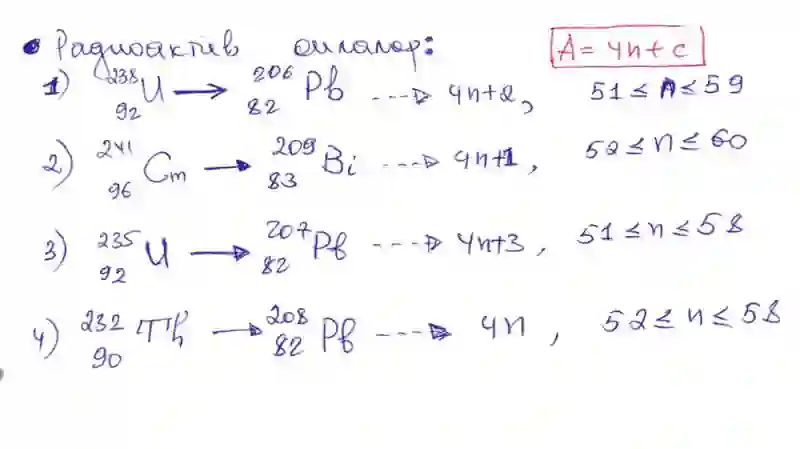 • Радиоактив оилалар: A = 4n + c
1) ²³⁸₉₂U → ²⁰⁶₈₂Pb ---> 4n+2, 51 ≤ n ≤ 59
2) ²⁴¹₉₆Cm → ²⁰⁹₈₃Bi ---> 4n+1, 52 ≤ n ≤ 60
3) ²³⁵₉₂U → ²⁰⁷₈₂Pb ---> 4n+3, 51 ≤ n ≤ 58
4) ²³²₉₀Th → ²⁰⁸₈₂Pb ---> 4n, 52 ≤ n ≤ 58